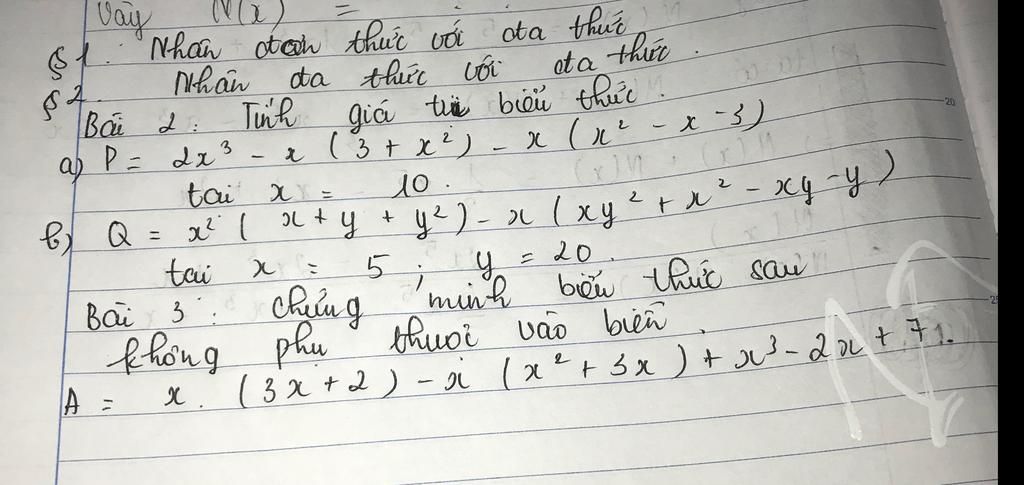 Vậy N(x) =
§1. Nhân đơn thức với đa thức
§2. Nhân đa thức với đa thức.
Bài 2: Tính giá trị biểu thức.
a) P = 2x³ - x (3 + x²) - x (x² - x - 3)
tại x = 10.
b) Q = x² (x + y + y²) - x (xy² + x² - xy - y)
tại x = 5; y = 20.
Bài 3: chứng minh biểu thức sau
không phụ thuộc vào biến.
A = x. (3x + 2) - x (x² + 3x) + x³ - 2x + 71.